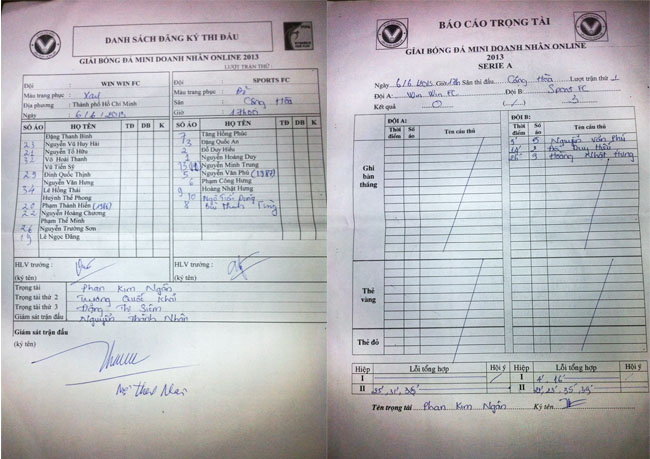 DANH SÁCH ĐĂNG KÝ THI ĐẤU
GIẢI BÓNG ĐÁ MINI DOANH NHÂN ONLINE 2013
LƯỢT TRẬN THỨ
Đội WIN WIN FC
Màu trang phục : Xanh
Địa phương : Thành phố Hồ Chí Minh
Ngày : 6/6/2013
Đội SPORTS FC
Màu trang phục : Đỏ
Sân : Cộng Hòa
Giờ : 17h00
SỐ ÁO HỌ TÊN TĐ DB K
Đặng Thanh Bình
23 Nguyễn Vũ Huy Hải
21 Nguyễn Tố Hữu
32 Võ Hoài Thanh
Vũ Tiến Sỹ
29 Đinh Quốc Thịnh
Nguyễn Văn Hưng
34 Lê Hồng Thái
Huỳnh Thế Phong
20 Phạm Thành Hiền
22 Nguyễn Hoàng Chương
Phạm Thế Minh
26 Nguyễn Trường Sơn
19 Lê Ngọc Đăng
SỐ ÁO HỌ TÊN TĐ DB K
7 Tăng Hồng Phúc
13 Đặng Quốc An
2 Đỗ Duy Hiếu
Nguyễn Hoàng Duy
Nguyễn Minh Trung
5 Nguyễn Văn Phú (1987)
6 Phạm Công Hưng
9 Hoàng Nhật Hưng
10 Ngô Tiến
8 Bùi Thanh Tùng
HLV trưởng :
(ký tên)
HLV trưởng :
(ký tên)
Trọng tài : Phan Kim Ngân
Trọng tài thứ 2 : Trương Quốc Khải
Trọng tài thứ 3 : Đặng Thị
Giám sát trận đấu : Nguyễn Thành Nhân
Giám sát trận đấu
(ký tên)
BÁO CÁO TRỌNG TÀI
GIẢI BÓNG ĐÁ MINI DOANH NHÂN ONLINE
2013
SERIE A
Ngày 6/6/2013 Giờ Sân thi đấu Cộng Hòa Lượt trận thứ 1
Đội A: Win Win FC Đội B: Sports FC
Kết quả 0 (-/-) 3
ĐỘI A: ĐỘI B:
Thời điểm Số áo Tên cầu thủ Thời điểm Số áo Tên cầu thủ
Ghi bàn thắng
5 Nguyễn Văn Phú
Đỗ Duy Hiếu
9 Hoàng Nhật Hưng
Thẻ vàng
Thẻ đỏ
Hiệp Lỗi tổng hợp Hội ý Hiệp Lỗi tổng hợp Hội ý
I I 4', 16'
II 25', 31', 35' II
Tên trọng tài Phan Kim Ngân Ký tên